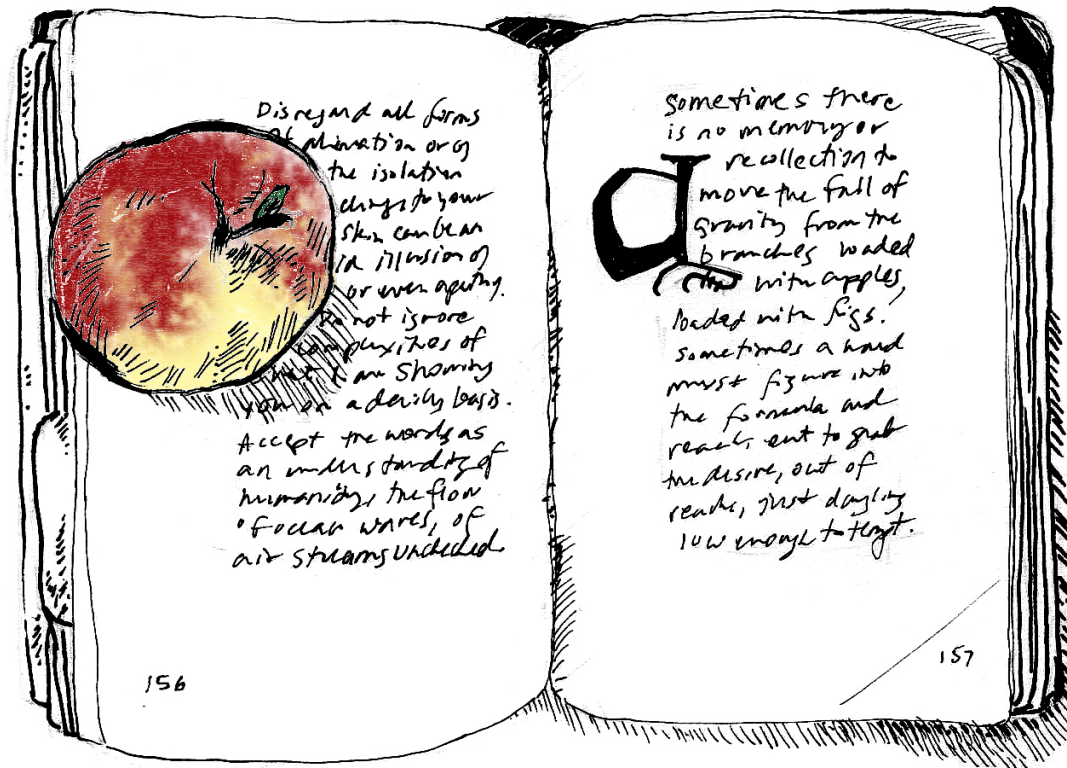 Disregard all forms
of alienation or of
the isolation
clings to your
skin can be an
illusion of
or even aging.
Do not ignore
complexities of
what I am showing
you on a daily basis.
Accept the words as
an understanding of
humanity, the flow
of ocean waves, of
air streams unchecked.
156
sometimes there
is no memory or
recollection to
move the fall of
gravity from the
branches loaded
with apples,
loaded with figs.
sometimes a hand
must figure into
the formula and
reach out to grab
the desire, out of
reach, just dangling
low enough to tempt.
157